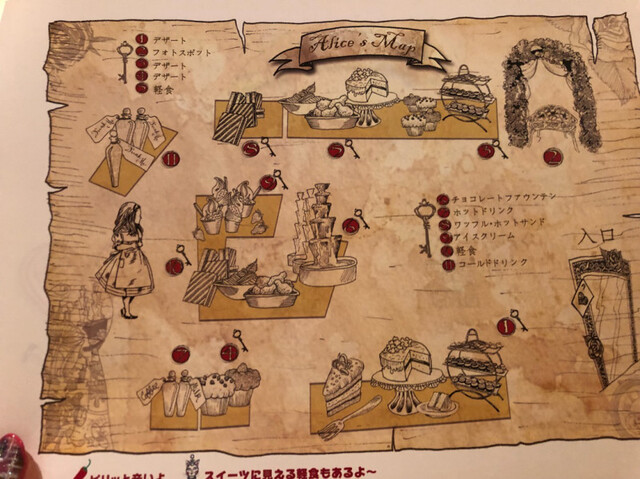 Alice's Map
1 デザート
2 フォトスポット
3 デザート
4 デザート
5 軽食
チョコレートファウンテン
ホットドリンク
ワッフル・ホットサンド
アイスクリーム
軽食
11 コールドドリンク
入口
11
5
5
3
2
9
6
1
7
4
ピリッと辛いよ
スイーツに見える軽食もあるよ～